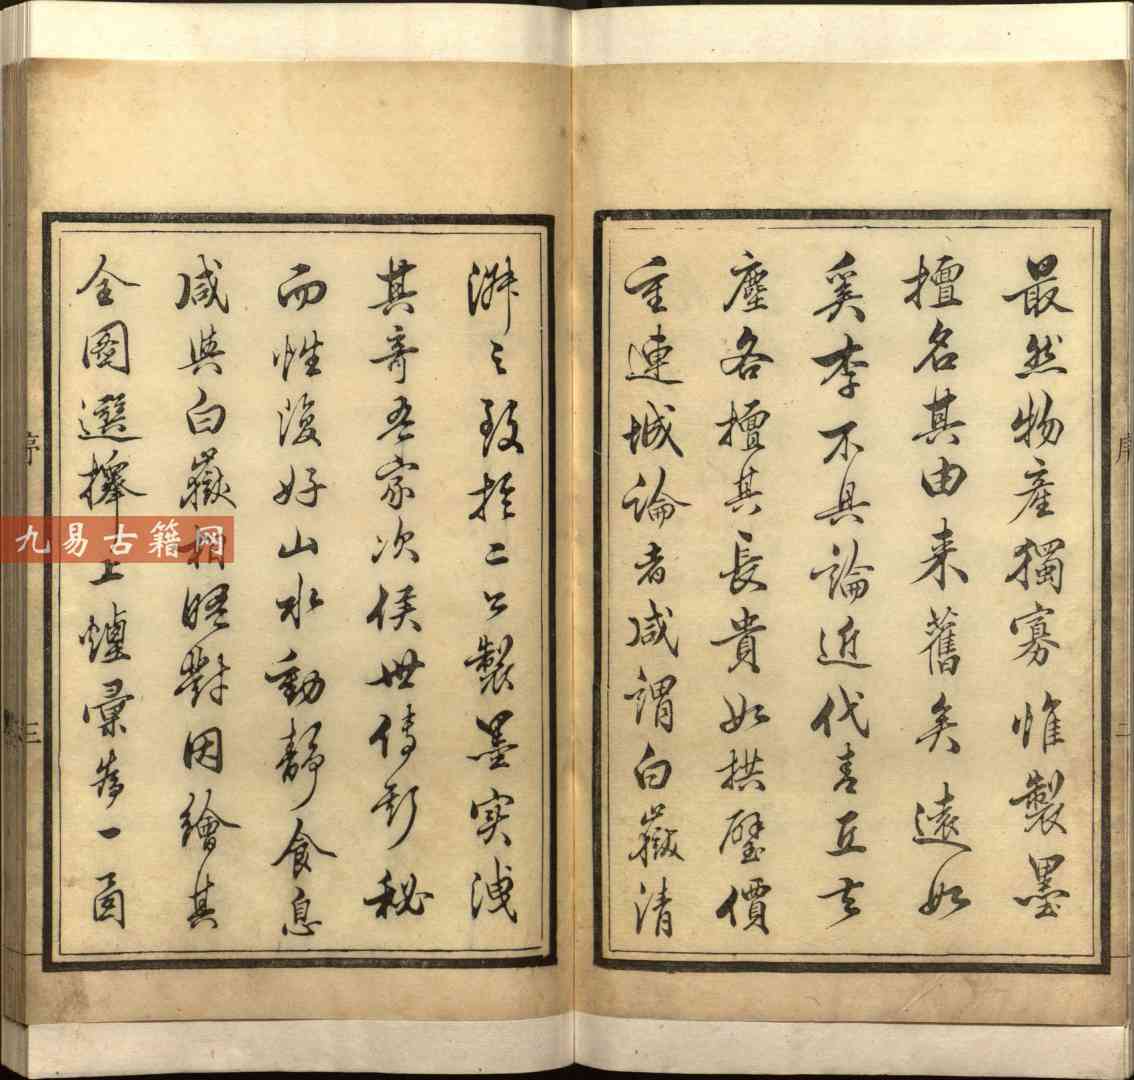 最然物產獨寡惟製墨
擅名其由来舊矣遠如
奚李不具論近代書互玄
塵各擅其長貴如拱璧價
重連城論者咸謂白嶽清
淋之致於二公製墨実洩
其竒吾家次侯世傳新秘
而性復好山水動靜食息
咸與白嶽相晤對因繪其
全圖選擇上煙彙為一函
序
二
序
三
九易古籍网